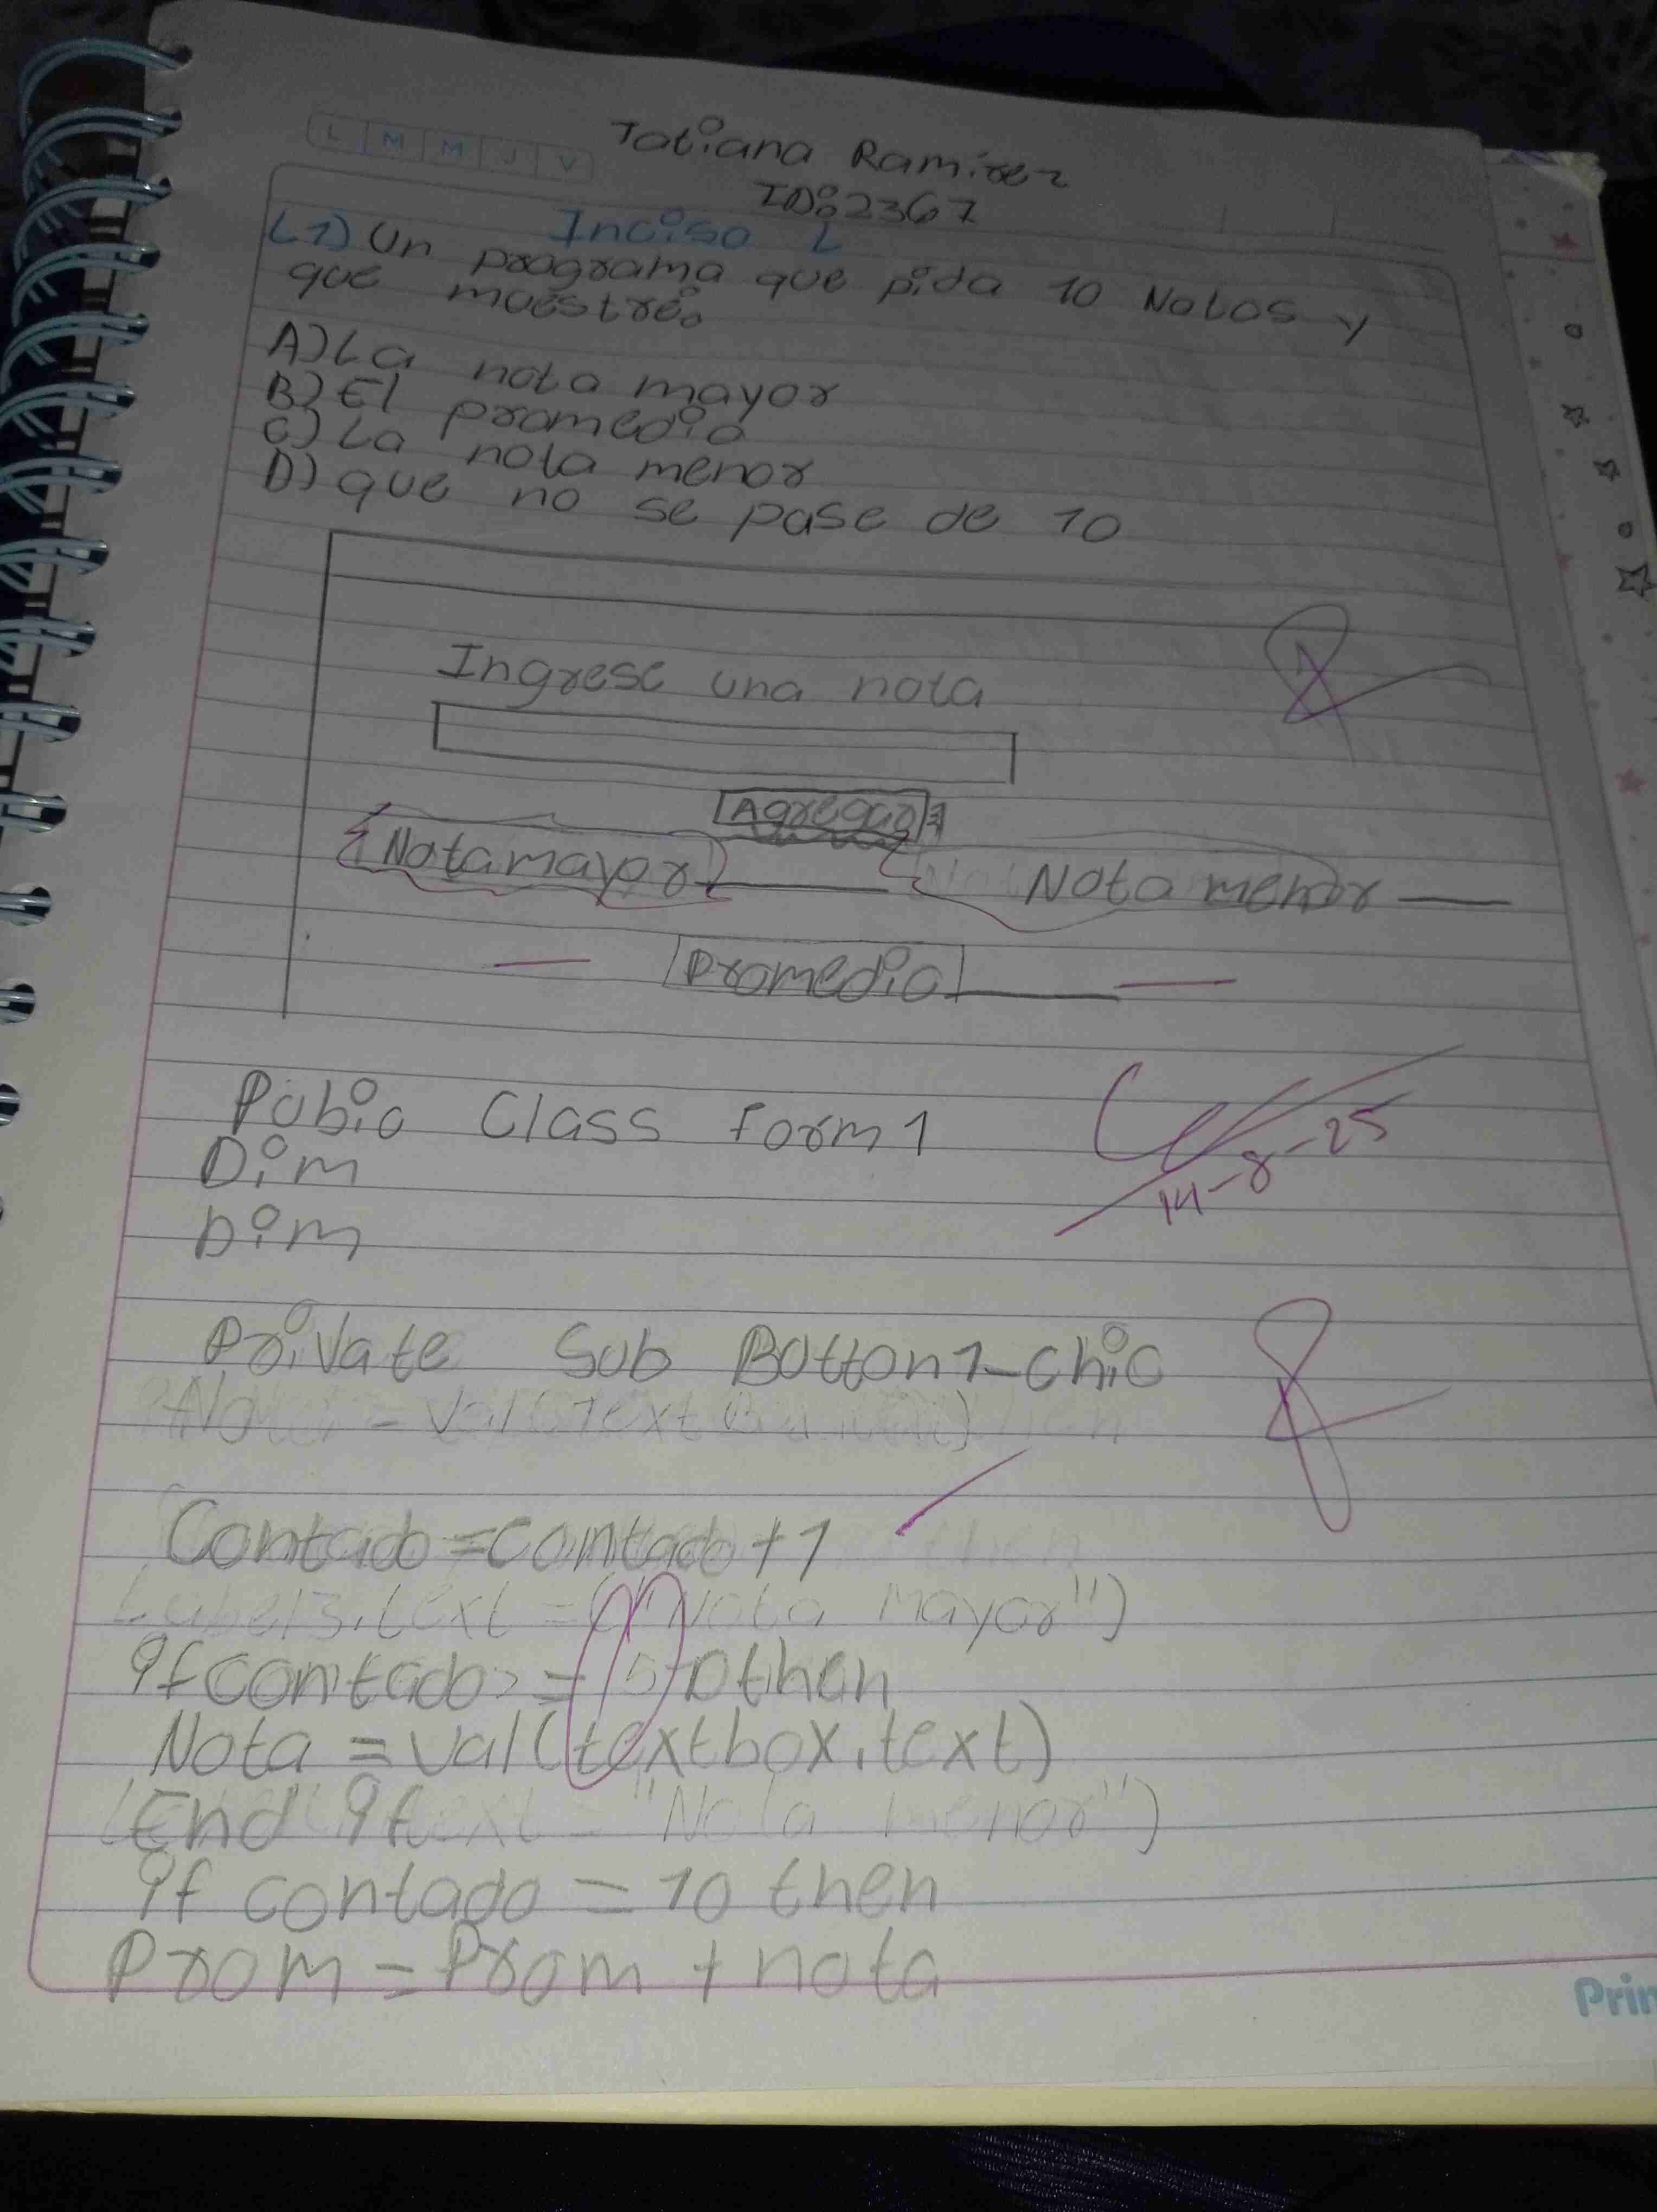 L M M J V
Tatiana Ramirez
ID:2367
Inciso L
L1) Un programa que pida 10 Notas y
que muestre:
A) La nota mayor
B) El promedio
C) La nota menor
D) que no se pase de 10
Ingrese una nota
Agregar
Nota mayor Nota menor
Promedio
Pubic Class Form1
14-8-25
Dim
Dim
Private Sub Botton1-Chic
Contado=Contado+1
Label3.text = ("Nota Mayor")
If contado> = 0 then
Nota = val(textbox.text)
End If
"Nota menor")
If contado = 10 then
Prom = Prom + nota